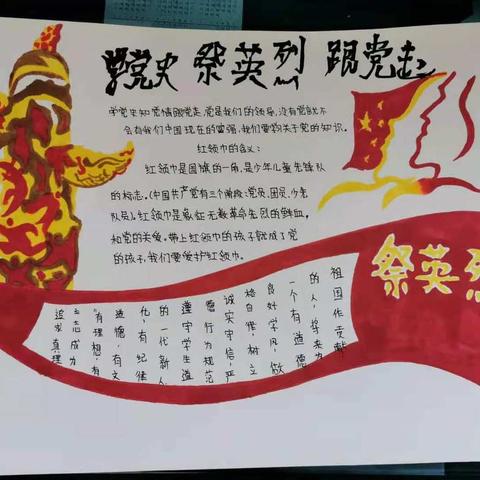 学党史 祭英烈 跟党走
学党史知党情跟党走,党是我们的领导,没有党就不
会有我们中国现在的富强,我们要多关于党的知识。
红领巾的含义:
红领巾是国旗的一角,是少年儿童先锋队
的标志。(中国共产党有三个阶段:党员、团员、少先
队员)。红领巾是象征无数革命先烈的鲜血,
和党的关爱。带上红领巾的孩子就成了党
的孩子,我们要爱护红领巾。
祭英烈
祖国作贡献
的人,将来为
一个有道德
良好学风,做
格自律,树立
诚实守信,严
德行为规范
遵守学生道
的一代新人。
化,有纪律
道德,有文
"有理想,有
立志成为
追求真理